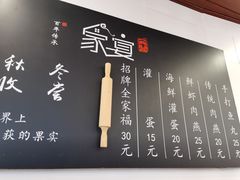 百年传承
家宴
秋收
冬尝
界上
获的果实
招牌全家福30元
灌蛋15元
海鲜灌蛋20元
鲜虾肉燕25元
传统肉燕20元
手打鱼丸